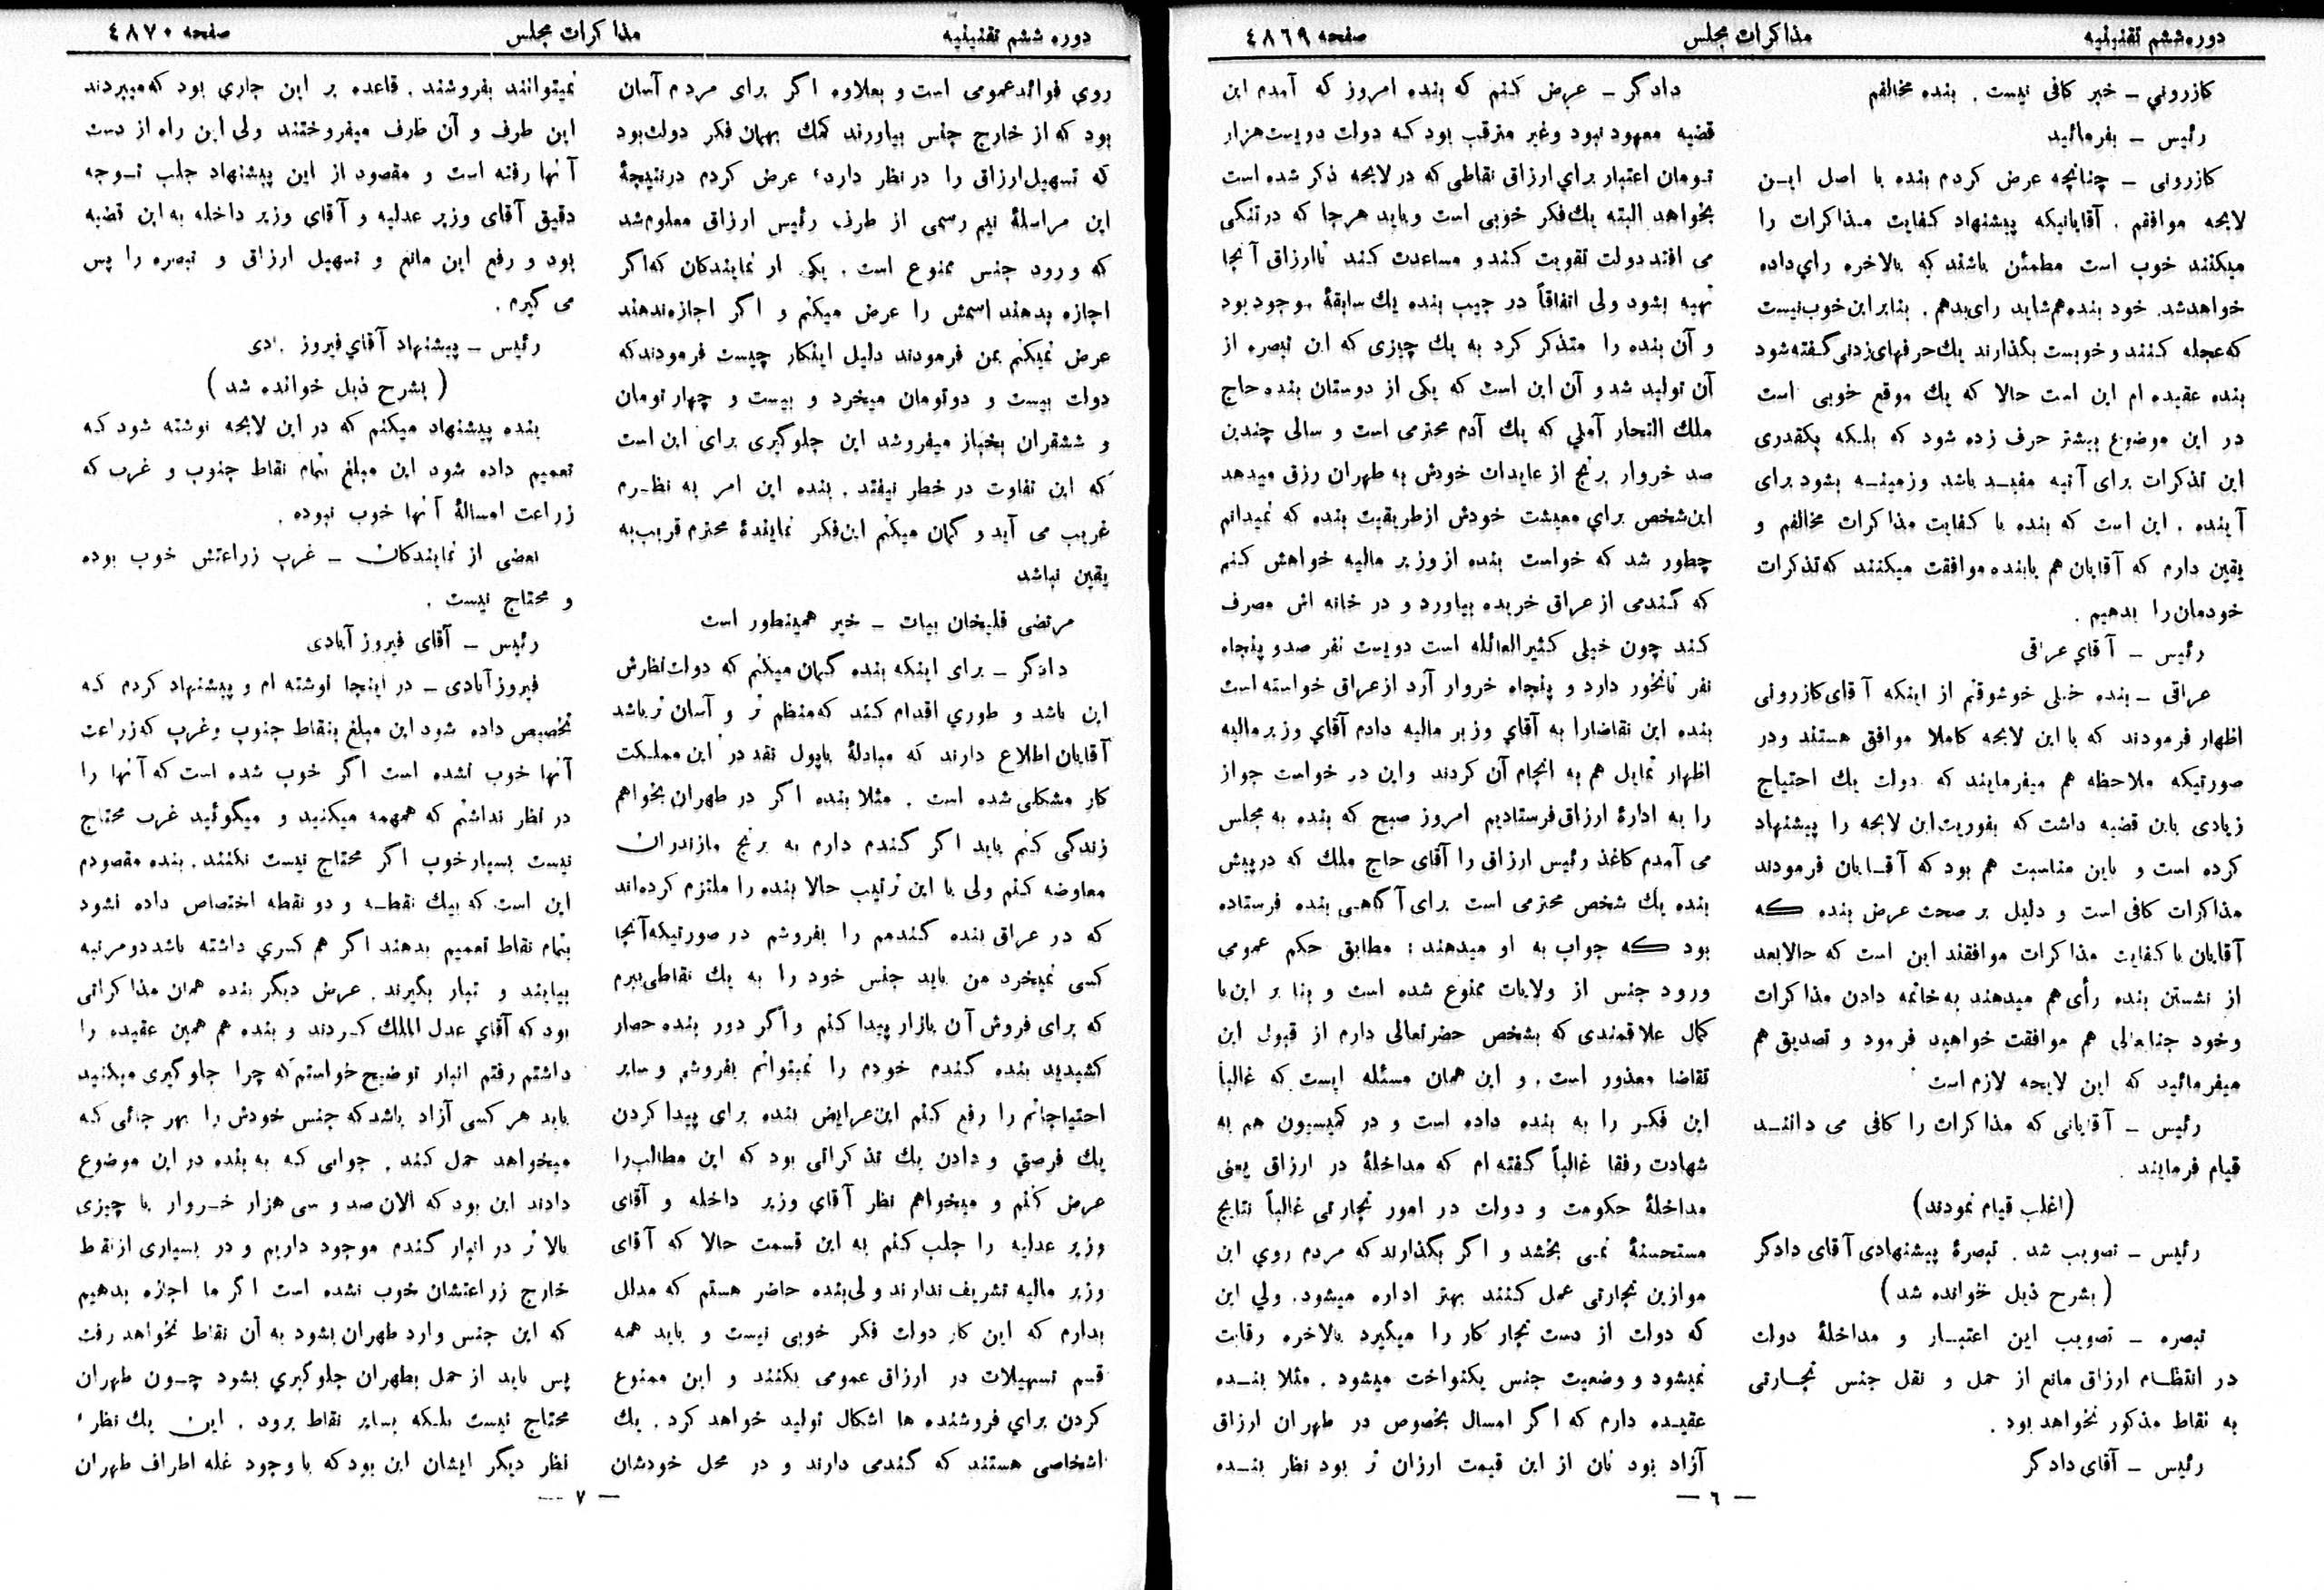 دوره ششم تقنینیه
مذاکرات مجلس
صفحه ٤٨٦٩
کازرونی ــ خیر کافی نیست . بنده مخالفم
رئیس ــ بفرمائید
کازرونی ــ چنانچه عرض کردم بنده با اصل این
لایحه موافقم . آقایانیکه پیشنهاد کفایت مذاکرات را
میکنند خوب است مطمئن باشند که بالاخره رأی داده
خواهد شد. خود بنده هم شاید رای بدهم . بنابراین خوب نیست
که عجله کنند و خوبست بگذارند یك حرفهای زدنی گفته شود
بنده عقیده ام این است حالا که یك موقع خوبی است
در این موضوع بیشتر حرف زده شود که بلکه یکقدری
این تذکرات برای آتیه مفید باشد و زمینه بشود برای
آینده . این است که بنده با کفایت مذاکرات مخالفم و
یقین دارم که آقایان هم با بنده موافقت میکنند که تذکرات
خودمان را بدهیم .
رئیس ــ آقای عراقی
عراقی ــ بنده خیلی خوشوقتم از اینکه آقای کازرونی
اظهار فرمودند که با این لایحه کاملا موافق هستند و در
صورتیکه ملاحظه هم میفرمایند که دولت یك احتیاج
زیادی باین قضیه داشت که بفوریت این لایحه را پیشنهاد
کرده است و باین مناسبت هم بود که آقایان فرمودند
مذاکرات کافی است و دلیل بر صحت عرض بنده که
آقایان با کفایت مذاکرات موافقند این است که حالا بعد
از نشستن بنده رأی هم میدهند به خاتمه دادن مذاکرات
وخود جنابعالی هم موافقت خواهید فرمود و تصدیق هم
میفرمائید که این لایحه لازم است
رئیس ــ آقایانی که مذاکرات را کافی می دانند
قیام فرمایند
(اغلب قیام نمودند)
رئیس ــ تصویب شد . تبصرهٔ پیشنهادی آقای دادگر
(بشرح ذیل خوانده شد)
تبصره ــ تصویب این اعتبار و مداخلهٔ دولت
در انتظام ارزاق مانع از حمل و نقل جنس تجارتی
به نقاط مذکور نخواهد بود .
رئیس ــ آقای دادگر
دادگر ــ عرض کنم که بنده امروز که آمدم این
قضیه معهود نبود وغیر مترقب بود که دولت دویست هزار
تومان اعتبار برای ارزاق نقاطی که در لایحه ذکر شده است
بخواهد البته یك فکر خوبی است و باید هر جا که در تنگی
می افتد دولت تقویت کند و مساعدت کند تا ارزاق آنجا
تهیه بشود ولی اتفاقاً در جیب بنده یك سابقهٔ موجود بود
و آن بنده را متذکر کرد به یك چیزی که این تبصره از
آن تولید شد و آن این است که یکی از دوستان بنده حاج
ملك التجار آملی که یك آدم محترمی است و سالی چندین
صد خروار برنج از عایدات خودش به طهران رزق میدهد
این شخص برای معیشت خودش از طریقیت بنده که نمیدانم
چطور شد که خواست بنده از وزیر مالیه خواهش کنم
که گندمی از عراق خریده بیاورد و در خانه اش مصرف
کند چون خیلی کثیرالعائله است دویست نفر صد و پنجاه
نفر نانخور دارد و پنجاه خروار آرد از عراق خواسته است
بنده این تقاضارا به آقای وزیر مالیه دادم آقای وزیر مالیه
اظهار تمایل هم به انجام آن کردند و این در خواست جواز
را به ادارهٔ ارزاق فرستادیم امروز صبح که بنده به مجلس
می آمدم کاغذ رئیس ارزاق را آقای حاج ملك که در پیش
بنده یك شخص محترمی است برای آگاهی بنده فرستاده
بود که جواب به او میدهند : مطابق حکم عمومی
ورود جنس از ولایات ممنوع شده است و بنا بر این با
کمال علاقمندی که بشخص حضرتعالی دارم از قبول این
تقاضا معذور است . و این همان مسئله ایست که غالباً
این فکر را به بنده داده است و در کمیسیون هم به
شهادت رفقا غالباً گفته ام که مداخلهٔ در ارزاق یعنی
مداخلهٔ حکومت و دولت در امور تجارتی غالباً نتایج
مستحسنهٔ نمی بخشد و اگر بگذارند که مردم روی این
موازین تجارتی عمل کنند بهتر اداره میشود. ولی این
که دولت از دست تجار کار را میگیرد بالاخره رقابت
نمیشود و وضعیت جنس یکنواخت میشود . مثلا بنده
عقیده دارم که اگر امسال بخصوص در طهران ارزاق
آزاد بود نان از این قیمت ارزان تر بود نظر بنده
— ٦ —
دوره ششم تقنینیه
مذاکرات مجلس
صفحه ٤٨٧٠
روی فوائد عمومی است و بعلاوه اگر برای مردم آسان
بود که از خارج جنس بیاورند کمك بهمان فکر دولت بود
که تسهیل ارزاق را در نظر دارد، عرض کردم در نتیجهٔ
این مراسلهٔ نیم رسمی از طرف رئیس ارزاق معلوم شد
که ورود جنس ممنوع است . یکی از نمایندگان که اگر
اجازه بدهند اسمش را عرض میکنم و اگر اجازه ندهند
عرض نمیکنم بمن فرمودند دلیل اینکار چیست فرمودند که
دولت بیست و دو تومان میخرد و بیست و چهار تومان
و ششقران بخباز میفروشد این جلوگیری برای این است
که این تفاوت در خطر نیفتد . بنده این امر به نظرم
غریب می آید و گمان میکنم این فکر نمایندهٔ محترم قریب به
یقین نباشد
مرتضی قلیخان بیات ــ خیر همینطور است
دادگر ــ برای اینکه بنده گمان میکنم که دولت نظرش
این باشد و طوری اقدام کند که منظم تر و آسان تر باشد
آقایان اطلاع دارند که مبادلهٔ باپول نقد در این مملکت
کار مشکلی شده است . مثلا بنده اگر در طهران بخواهم
زندگی کنم باید اگر گندم دارم به برنج مازندران
معاوضه کنم ولی با این ترتیب حالا بنده را ملتزم کرده اند
که در عراق بنده گندمم را بفروشم در صورتیکه آنجا
کسی نمیخرد من باید جنس خود را به یك نقاطی ببرم
که برای فروش آن بازار پیدا کنم و اگر دور بنده حصار
کشیدید بنده گندم خودم را نمیتوانم بفروشم و سایر
احتیاجاتم را رفع کنم این عرایض بنده برای پیدا کردن
یك فرصتی و دادن یك تذکراتی بود که این مطالب را
عرض کنم و میخواهم نظر آقای وزیر داخله و آقای
وزیر عدلیه را جلب کنم به این قسمت حالا که آقای
وزیر مالیه تشریف ندارند ولی بنده حاضر هستم که مدلل
بدارم که این کار دولت فکر خوبی نیست و باید همه
قسم تسهیلات در ارزاق عمومی بکنند و این ممنوع
کردن برای فروشنده ها اشکال تولید خواهد کرد . یك
اشخاصی هستند که گندمی دارند و در محل خودشان
نمیتوانند بفروشند . قاعده بر این جاری بود که میبردند
این طرف و آن طرف میفروختند ولی این راه از دست
آنها رفته است و مقصود از این پیشنهاد جلب توجه
دقیق آقای وزیر عدلیه و آقای وزیر داخله به این قضیه
بود و رفع این مانع و تسهیل ارزاق و تبصره را پس
می گیرم .
رئیس ــ پیشنهاد آقای فیروز
(بشرح ذیل خوانده شد)
بنده پیشنهاد میکنم که در این لایحه نوشته شود که
تعمیم داده شود این مبلغ تمام نقاط جنوب و غرب که
زراعت امسالهٔ آنها خوب نبوده .
بعضی از نمایندگان ــ غرب زراعتش خوب بوده
و محتاج نیست .
رئیس ــ آقای فیروز آبادی
فیروزآبادی ــ در اینجا نوشته ام و پیشنهاد کردم که
تخصیص داده شود این مبلغ بنقاط جنوب و غرب که زراعت
آنها خوب نشده است اگر خوب شده است که آنها را
در نظر نداشتم که همهمه میکنید و میگوئید غرب محتاج
نیست بسیار خوب اگر محتاج نیست نکنند . بنده مقصودم
این است که بیك نقطه و دو نقطه اختصاص داده نشود
بتمام نقاط تعمیم بدهند اگر هم کسری داشته باشد دو مرتبه
بیایند و اعتبار بگیرند . عرض دیگر بنده همان مذاکراتی
بود که آقای عدل الملك کردند و بنده هم همین عقیده را
داشتم رفتم انبار توضیح خواستم که چرا جلوگیری میکنید
باید هر کسی آزاد باشد که جنس خودش را بهر جائی که
میخواهد حمل کند . جوابی که به بنده در این موضوع
دادند این بود که الان صد و سی هزار خروار یا چیزی
بالا تر در انبار گندم موجود داریم و در بسیاری از نقاط
خارج زراعتشان خوب نشده است اگر ما اجازه بدهیم
که این جنس وارد طهران بشود به آن نقاط نخواهد رفت
پس باید از حمل بطهران جلوگیری بشود چون طهران
محتاج نیست بلکه بسایر نقاط برود . این یك نظر ،
نظر دیگر ایشان این بود که با وجود غله اطراف طهران
— ٧ —